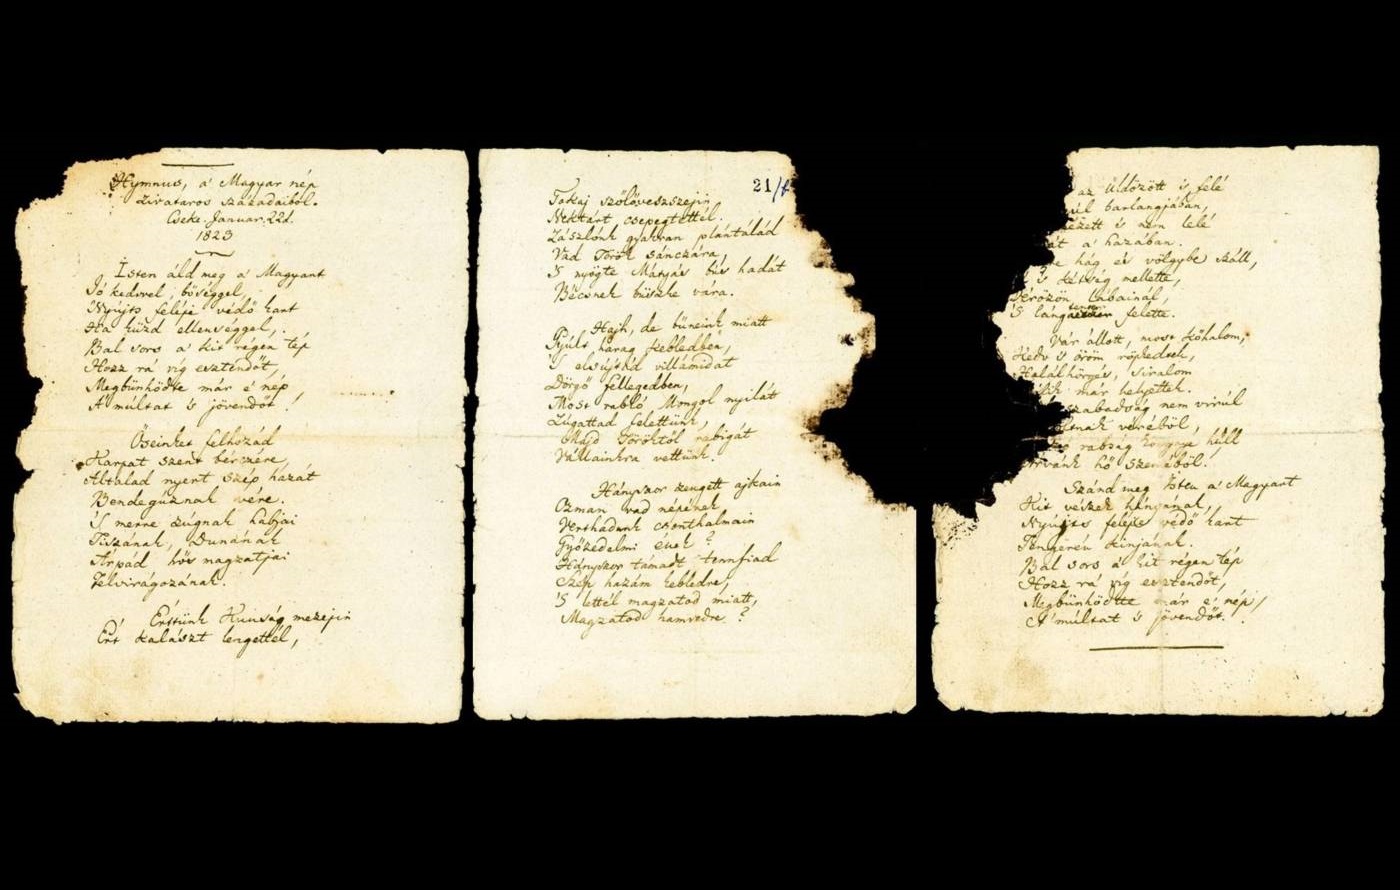 Hymnus, a' Magyar nép
zivataros századaiból.
Cseke. Januar. 22d.
1823
Isten áld meg a' Magyart
Jó kedvvel, bőséggel,
Nyújts feléje védő kart
Ha küzd ellenséggel,
Bal sors a' kit régen tép
Hozz rá víg esztendőt,
Megbünhödte már e' nép
A' múltat 's jövendőt!
Őseinket felhozád
Kárpát szent bérczére,
Általad nyert szép hazát
Bendegúznak vére.
'S merre zúgnak habjai
Tiszának, Dunának
Árpád hős magzatjai
Felvirágozának.
Értünk Kunság mezejin
Ért kalászt lengettél,
21/
Tokaj szőlőveszszejin
Nektárt csepegtettél.
Zászlónk gyakran plántálád
Vad Török sánczára,
'S nyögte Mátyás bús hadát
Bécsnek büszke vára.
Hajh, de bűneink miatt
Gyúlt harag kebledben,
'S elsújtád villámidat
Dörgő fellegedben,
Most rabló Mongol nyilát
Zúgattad felettünk,
Majd Töröktől rabigát
Vállainkra vettünk.
Hányszor zengett ajkain
Ozman vad népének
Vert hadunk csonthalmain
Győzedelmi ének?
Hányszor támadt tennfiad
Szép hazám kebledre,
'S lettél magzatod miatt,
Magzatod hamvedre?
az üldözött 's felé
barlangjában,
's nem lelé
a' hazában.
hág és völgybe száll,
's kétség mellette,
Vérözön lábainál,
'S lángtenger felette.
Vár állott, most kőhalom,
Kedv 's öröm röpkedtek,
Halálhörgés, siralom
már helyettek.
szabadság nem virúl
véréből,
rabság könnye hull
hő szeméből.
Szánd meg Isten a' Magyart
Kit vészek hányának,
Nyújts feléje védő kart
Tengerén kínjának.
Bal sors a' kit régen tép
Hozz rá víg esztendőt,
Megbünhödte már e' nép
A' múltat 's jövendőt.